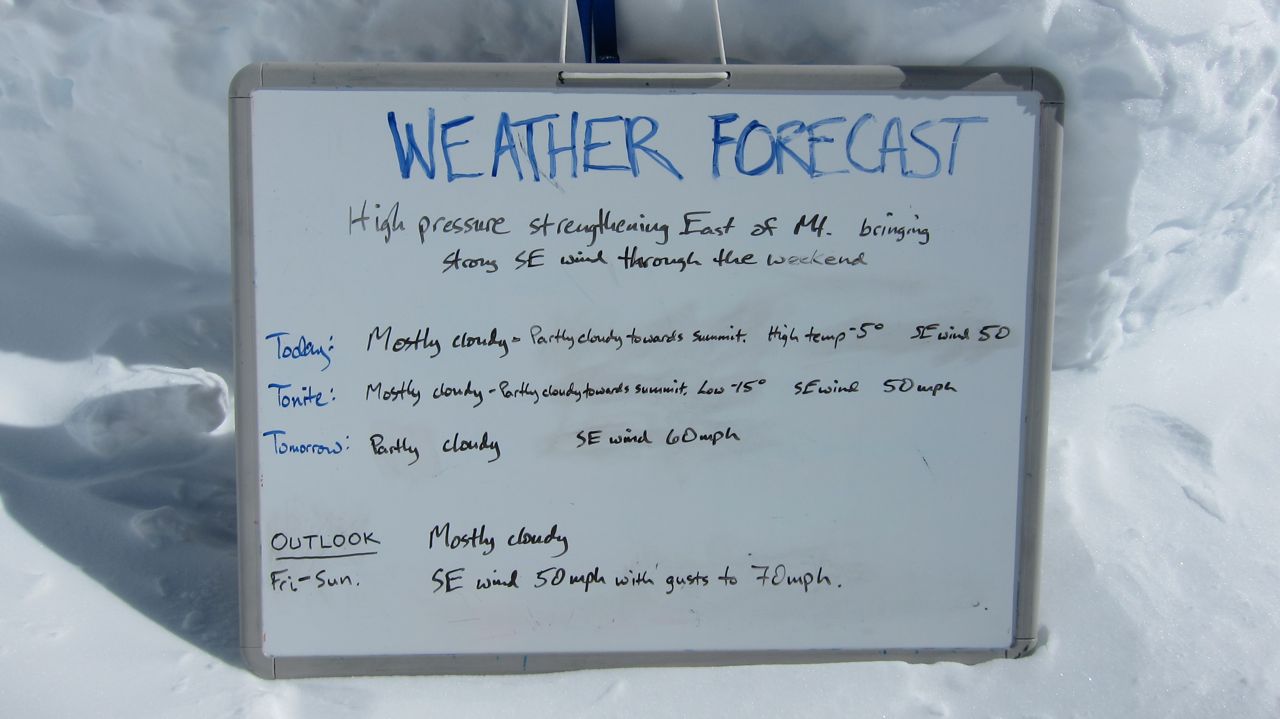 WEATHER FORECAST
High pressure strengthening East of Mt. bringing
strong SE wind through the weekend
Today: Mostly cloudy - Partly cloudy towards summit. High temp -5° SE wind 50
Tonite: Mostly cloudy - Partly cloudy towards summit. Low -15° SE wind 50mph
Tomorrow: Partly cloudy SE wind 60mph
OUTLOOK Mostly cloudy
Fri-Sun. SE wind 50mph with gusts to 70mph.